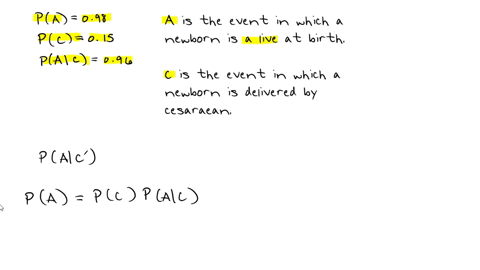 P(A) = 0.98
P(C) = 0.15
P(A|C) = 0.96
A is the event in which a
newborn is a live at birth.
C is the event in which a
newborn is delivered by
cesaraean.
P(A|C′)
P(A) = P(C) P(A|C)